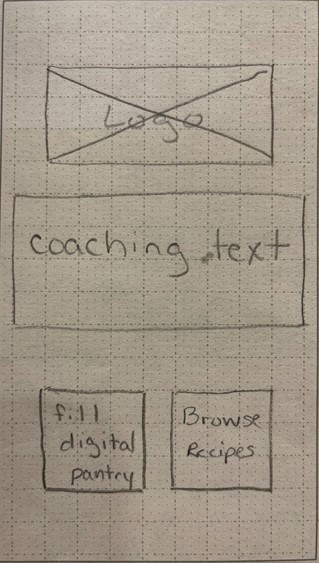 Logo
coaching text
fill
digital
pantry
Browse
Recipes